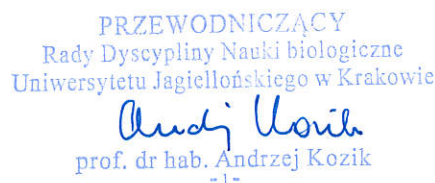 PRZEWODNICZĄCY
Rady Dyscypliny Nauki biologiczne
Uniwersytetu Jagiellońskiego w Krakowie
Andrzej Kozik
prof. dr hab. Andrzej Kozik
- 1 -